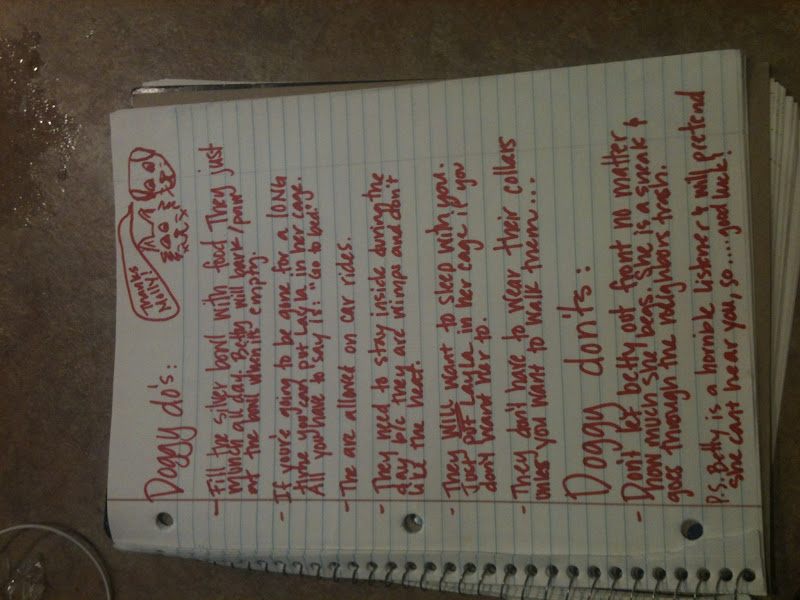 Doggy do's:
Thanks
Molly!
- Fill the silver bowl with food They just
munch all day. Betty will bark/paw
at the bowl when its empty.
- If you're going to be gone for a LONG
time you can put Layla in her cage.
All you have to say is: "Go to bed"
- The are allowed on car rides.
- They need to stay inside during the
day b/c they are wimps and don't
like the heat.
- They WILL want to sleep with you.
Just put Layla in her cage if you
don't want her to.
- They don't have to wear their collars
unless you want to walk them...
Doggy don'ts:
- Don't let betty out front no matter
how much she begs. She is a sneak &
goes through the neighbors trash.
P.S. Betty is a horrible listener & will pretend
she cant hear you, so.... good luck!